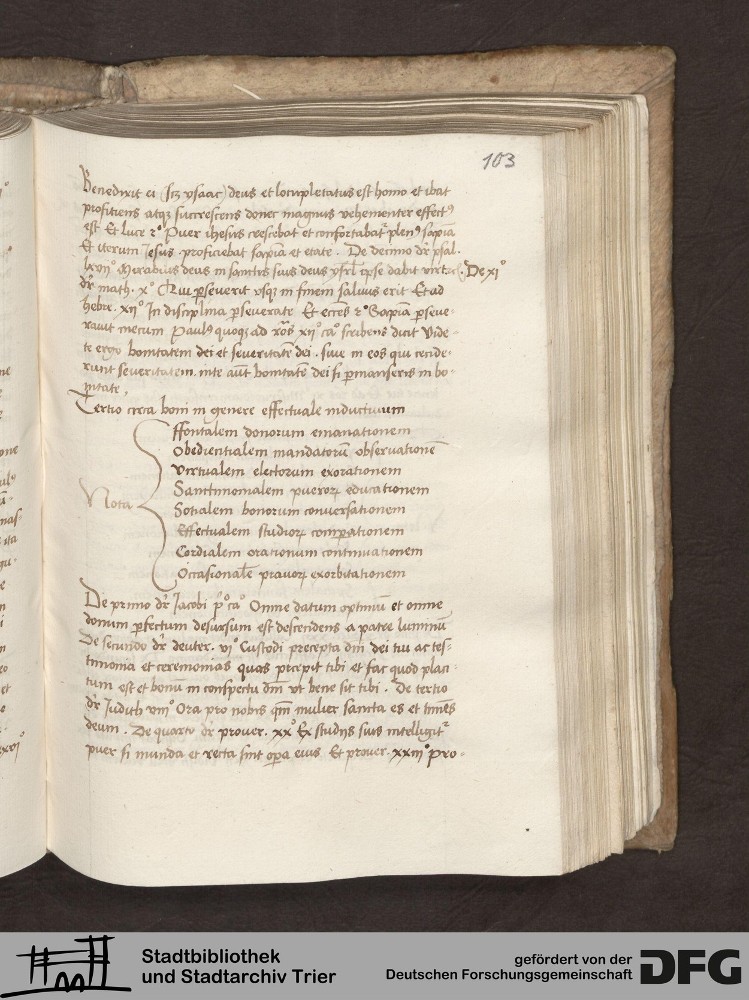 103
Benedixit ei (scz ysaac) deus et locupletatus est homo et ibat
proficiens atqz succrescens donec magnus vehementer effectꝰ
est Et luce 2° Puer ihesus crescebat et confortabatᷣ plenꝰ sapiā
Et iterum Jesus proficiebat sapiā et etate . De decimo dr̄ psal.
lxvii° Mirabilis deus in sanctis suis deus isrl̄ ipse dabit virtu . De xi°
dr̄ math. x° Qui ꝑseverit vsqz in finem salvus erit Et ad
hebre. xii° In disciplina ꝑseverate Et eccēs 2° Sapiā ꝑseve-
ravit mecum Paulꝰ quoqz ad roōs xii° ca° scribens dicit Vide-
te ergo bonitatem dei et severitatē dei . sive in eos qui cecide-
runt severitatem . in te aūt bonitatē dei si ꝑmanseris in bo-
nitate .
Tertio circa boni in genere effectuale inductiuum
Nota
ffontalem donorum emanationem
Obedientialem mandatorū observationē
Virtualem electorum exorationem
Sanctimonialem pueroꝝ educationem
Sotialem bonorum conversationem
Effectualem studioꝝ comꝑationem
Cordialem orationum continuationem
Occasionalē pravoꝝ exorbitationem
De primo dr̄ Jacobi p° ca° Omne datum optimū et omne
donum ꝑfectum desursum est descendens a patre luminū
De secundo dr̄ deuter. vi° Custodi precepta dn̄i dei tui ac tes-
timonia et ceremonias quas precepit tibi et fac quod placi-
tum est et bonū in conspectu dn̄i vt bene sit tibi . De tertio
dr̄ Judith viii° Ora pro nobis qm̄ mulier sancta es et timēs
deum . De quarto dr̄ prover. xx° Ex studijs suis intelligitᷣ
puer si munda et recta sint oꝑa eius Et prover. xxiii° Pro-
Stadtbibliothek
und Stadtarchiv Trier
gefördert von der
Deutschen Forschungsgemeinschaft
DFG